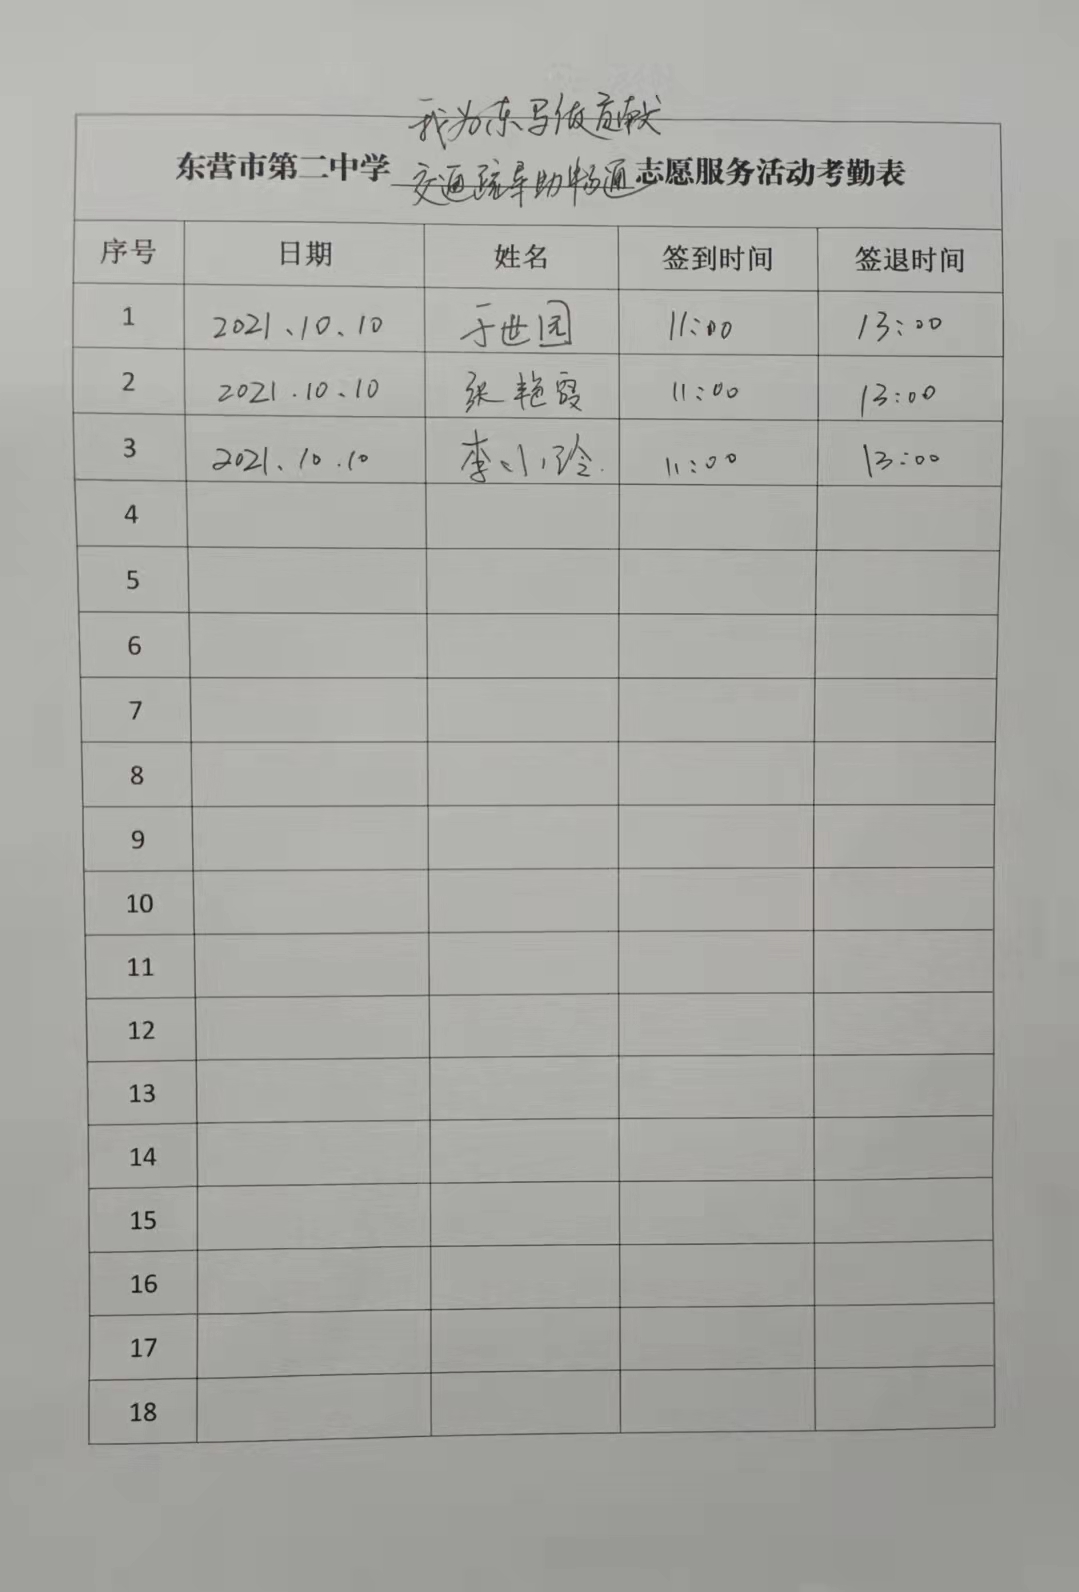 我为东马做贡献
东营市第二中学 交通疏导助畅通 志愿服务活动考勤表
序号 日期 姓名 签到时间 签退时间
1 2021、10、10 于世园 11:00 13:00
2 2021.10、10 张艳霞 11:00 13:00
3 2021、10.10 李小玲. 11:00 13:00
4
5
6
7
8
9
10
11
12
13
14
15
16
17
18